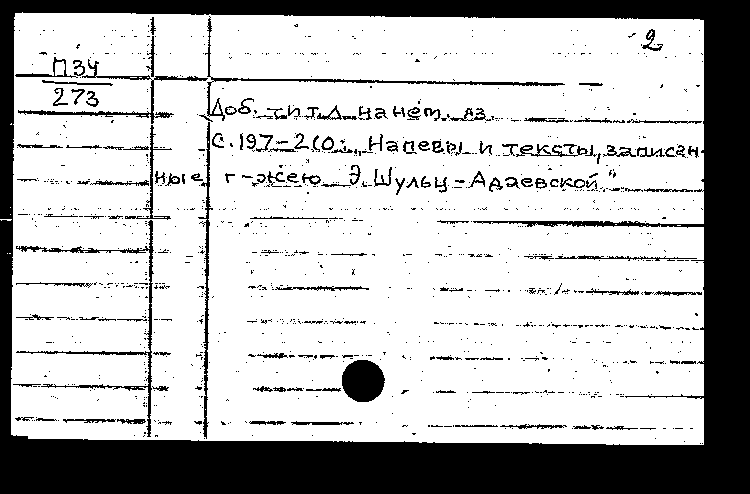 2
П34
273
Доб. тит. л. на нем. яз.
С. 197-210: „Напевы и тексты, записан-
ные г-жею Э. Шульц-Адаевской"